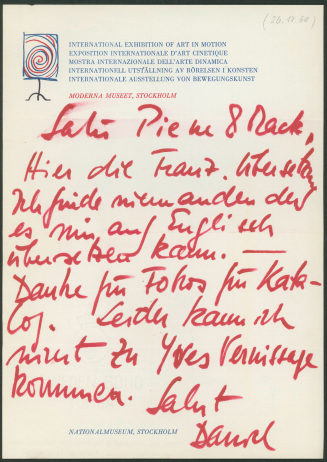 (26.11.60)
INTERNATIONAL EXHIBITION OF ART IN MOTION
EXPOSITION INTERNATIONALE D'ART CINETIQUE
MOSTRA INTERNAZIONALE DELL'ARTE DINAMICA
INTERNATIONELL UTSTÄLLNING AV RÖRELSEN I KONSTEN
INTERNATIONALE AUSSTELLUNG VON BEWEGUNGSKUNST
MODERNA MUSEET, STOCKHOLM
Salü Piene & Mack,
Hier die Franz. Übersetzung
Ich finde niemanden der
es mir auf Englisch
übersetzen kann. —
Danke für Fotos für Kata-
log. Leider kann ich
nicht zu Yves Vernissage
kommen. Salut
Daniel
NATIONALMUSEUM, STOCKHOLM